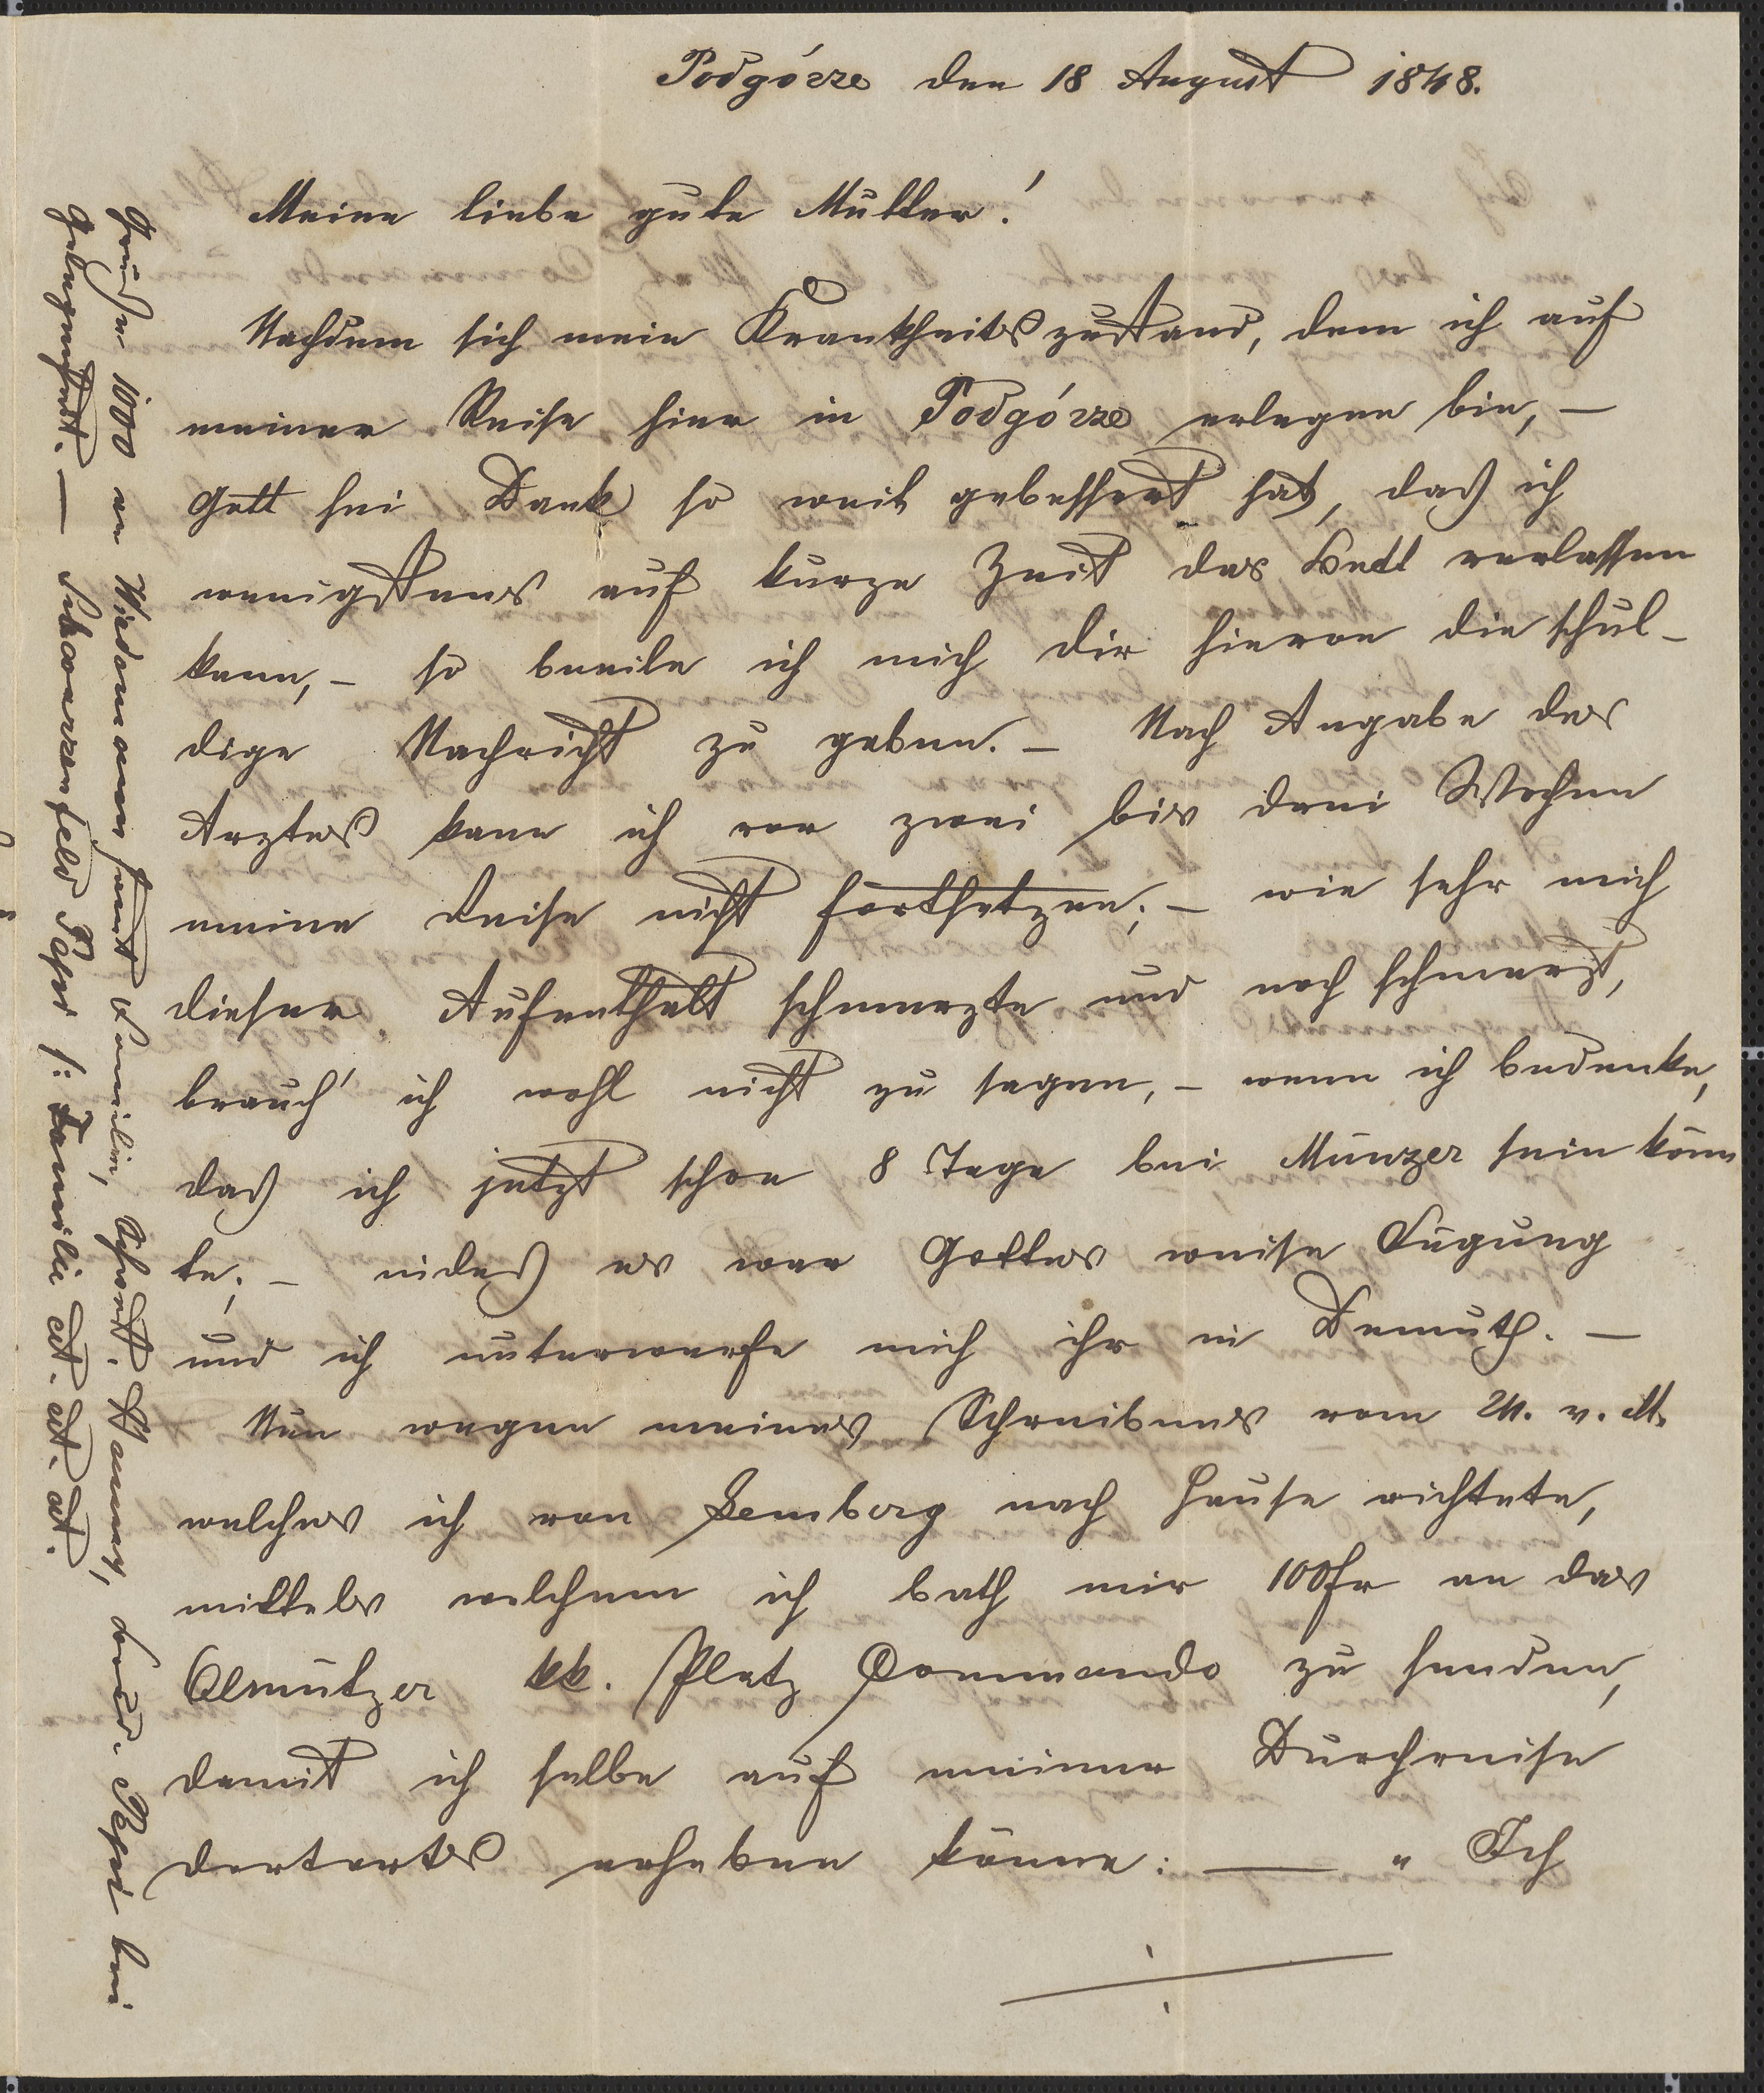 Podgórze den 18 August 1848.
Meine liebe gute Mutter!
Nachdem sich mein Krankheitszustand, dem ich auf
meiner Reise hier in Podgórze erlegen bin, –
Gott sei Dank so weit gebessert hat, daß ich
wenigstens auf kurze Zeit das Bett verlassen
kann, – so beeile ich mich Dir hievon die schul-
dige Nachricht zu geben. – Nach Angabe des
Arztes kann ich vor zwei bis drei Wochen
meine Reise nicht fortsetzen; – wie sehr mich
dieser Aufenthalt schmerzte und noch schmerzt,
brauch' ich wohl nicht zu sagen, – wenn ich bedenke,
daß ich jetzt schon 8 Tage bei Münzer sein könn
te; – indeß es war Gottes weise Fügung
und ich unterwerfe mich ihr in Demuth. –
Nun wegen meines Schreibens vom 24. v. M.
welches ich von Lemberg nach Hause richtete,
mittels welchem ich bath mir 100fr an das
Olmützer kk. Platz Commando zu senden,
damit ich selbe auf meiner Durchreise
dortorts erheben könne: — „ Ich
Grüße 1000 an Wiedemann samt Familie, Pepi bei
Gelegenheit. — Schwarzenfeld Pepi /: Familie etc. etc. etc.